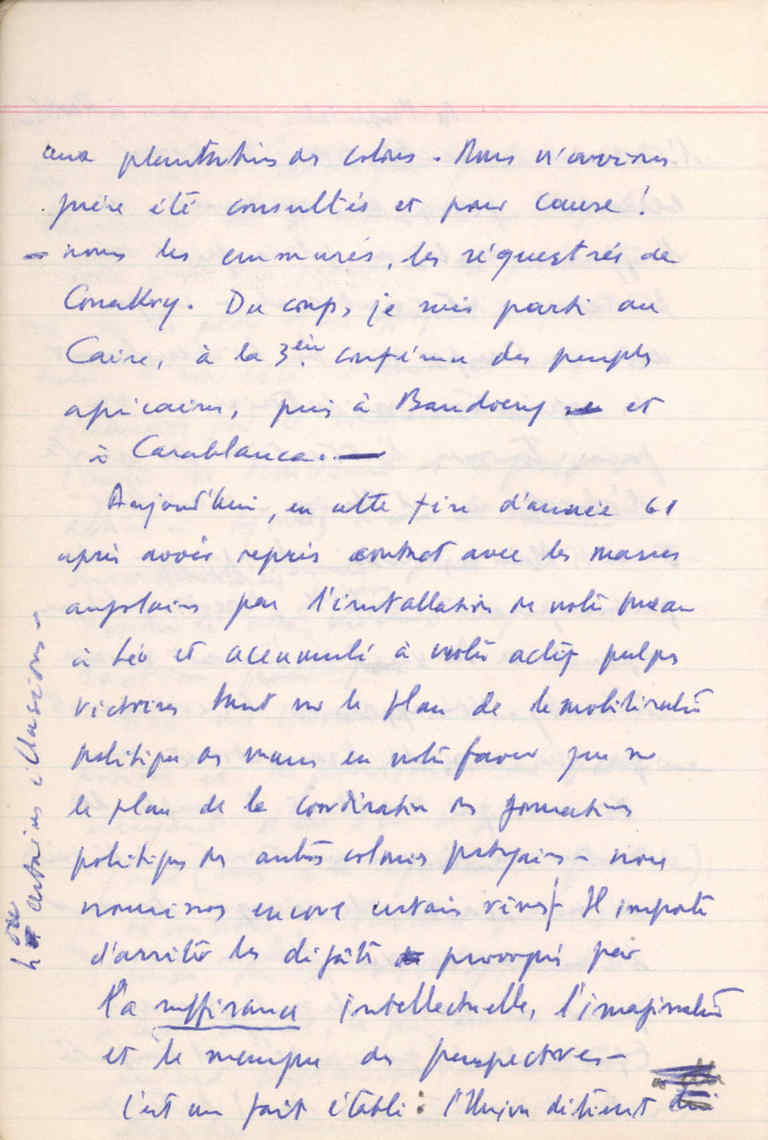 aux plantations des colons. Nous n'avions
guère été consultés et pour cause !
- nous les emmurés, les séquestrés de
Conakry. Du coup, je suis parti au
Caire, à la 3ème conférence des peuples
africains, puis à Bandoeng et
à Casablanca. —
Aujourd'hui, en cette fin d'année 61
après avoir repris contact avec les masses
angolaises par l'installation de notre bureau
à Léo et accumulé à notre actif quelques
victoires tant sur le plan de la mobilisation
politique des masses en notre faveur que sur
le plan de la coordination des formations
politiques des autres colonies portugaises - nous
nourrissons encore certains rêves Il importe
ou certaines illusions -
d'arrêter les dégâts provoqués par
la suffisance intellectuelle, l'imagination
et le manque de perspectives -
C'est un fait établi : l'Union détient